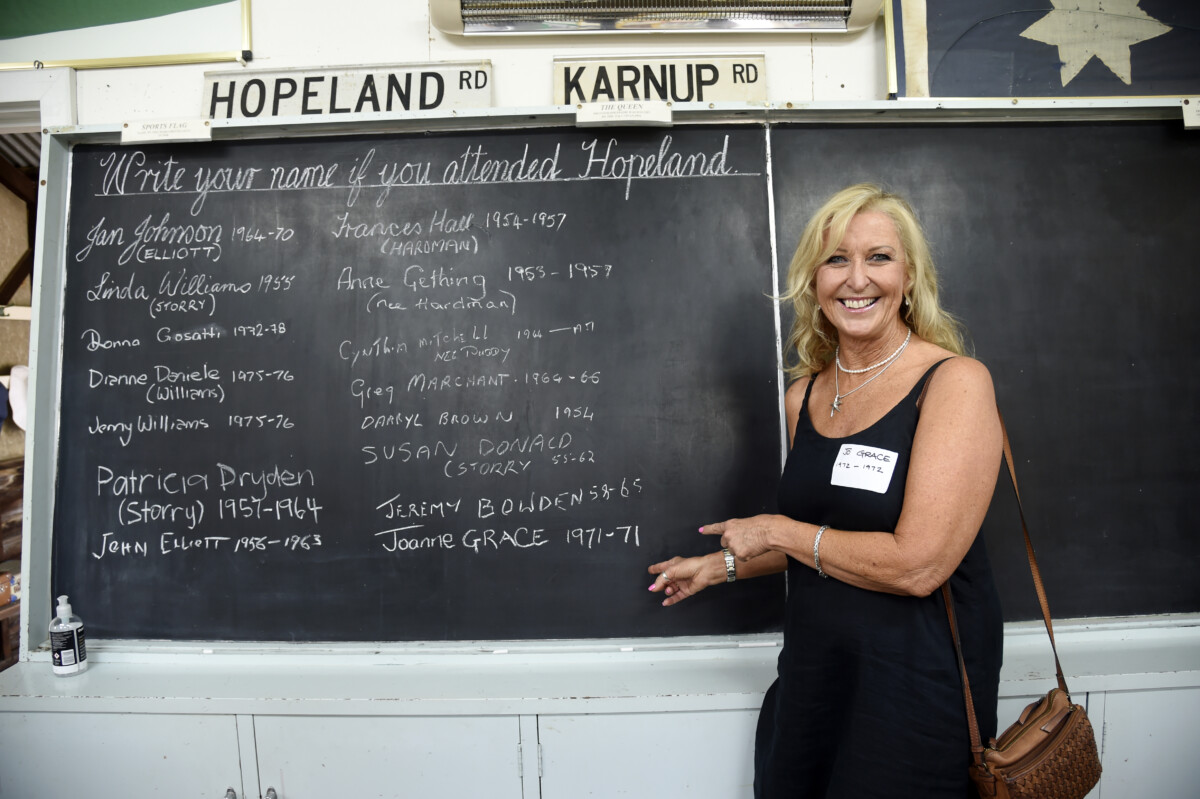 HOPELAND RD
KARNUP RD
SPORTS FLAG
THE QUEEN
Write your name if you attended Hopeland.
Jan Johnson 1964-70
(ELLIOTT)
Linda Williams 1955
(STORRY)
Donna Gosatti 1972-78
Dianne Daniele 1975-76
(Williams)
Jenny Williams 1975-76
Patricia Dryden
(Storry) 1957-1964
John Elliott 1956-1963
Frances Hall 1954-1957
(HARDMAN)
Anne Gething 1953-1957
(nee Hardman)
Cynthia Mitchell
NEE
Greg MARCHANT. 1964-66
DARRYL BROWN 1954
SUSAN DONALD
(STORRY 55-62
JEREMY BOWDEN 58-65
Joanne GRACE 1971-71
JO GRACE
1972-1972